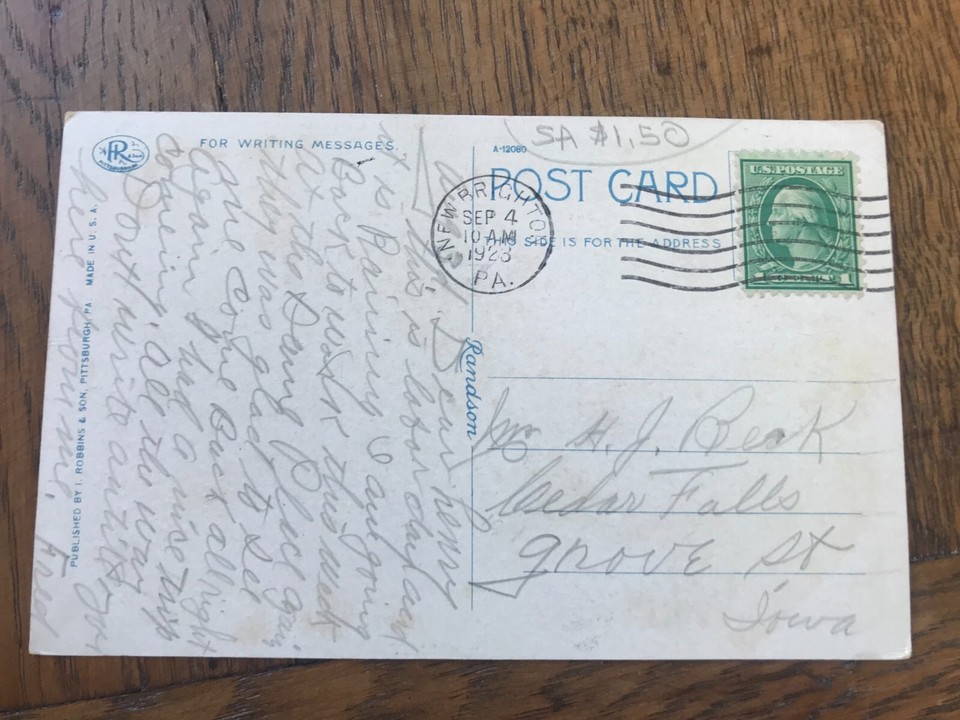 FOR WRITING MESSAGES.
PITTSBURGH
PUBLISHED BY I. ROBBINS & SON, PITTSBURGH, PA. MADE IN U. S. A.
Dear henry
this is labor day and
it is Raining I am going
Back to work this week
at the Same Place again
they was glad to see
me Come Back allright
again had a nice trip
Coming all the way
Dont write until you
here from me, Fred
Randson
SA $1,50
A-12080
POST CARD
THIS SIDE IS FOR THE ADDRESS
NEW BRIGHTON
SEP 4
10 AM
1923
PA.
U.S. POSTAGE
1 1
Mr H. J. Beck
Cedar Falls
grove St
Iowa